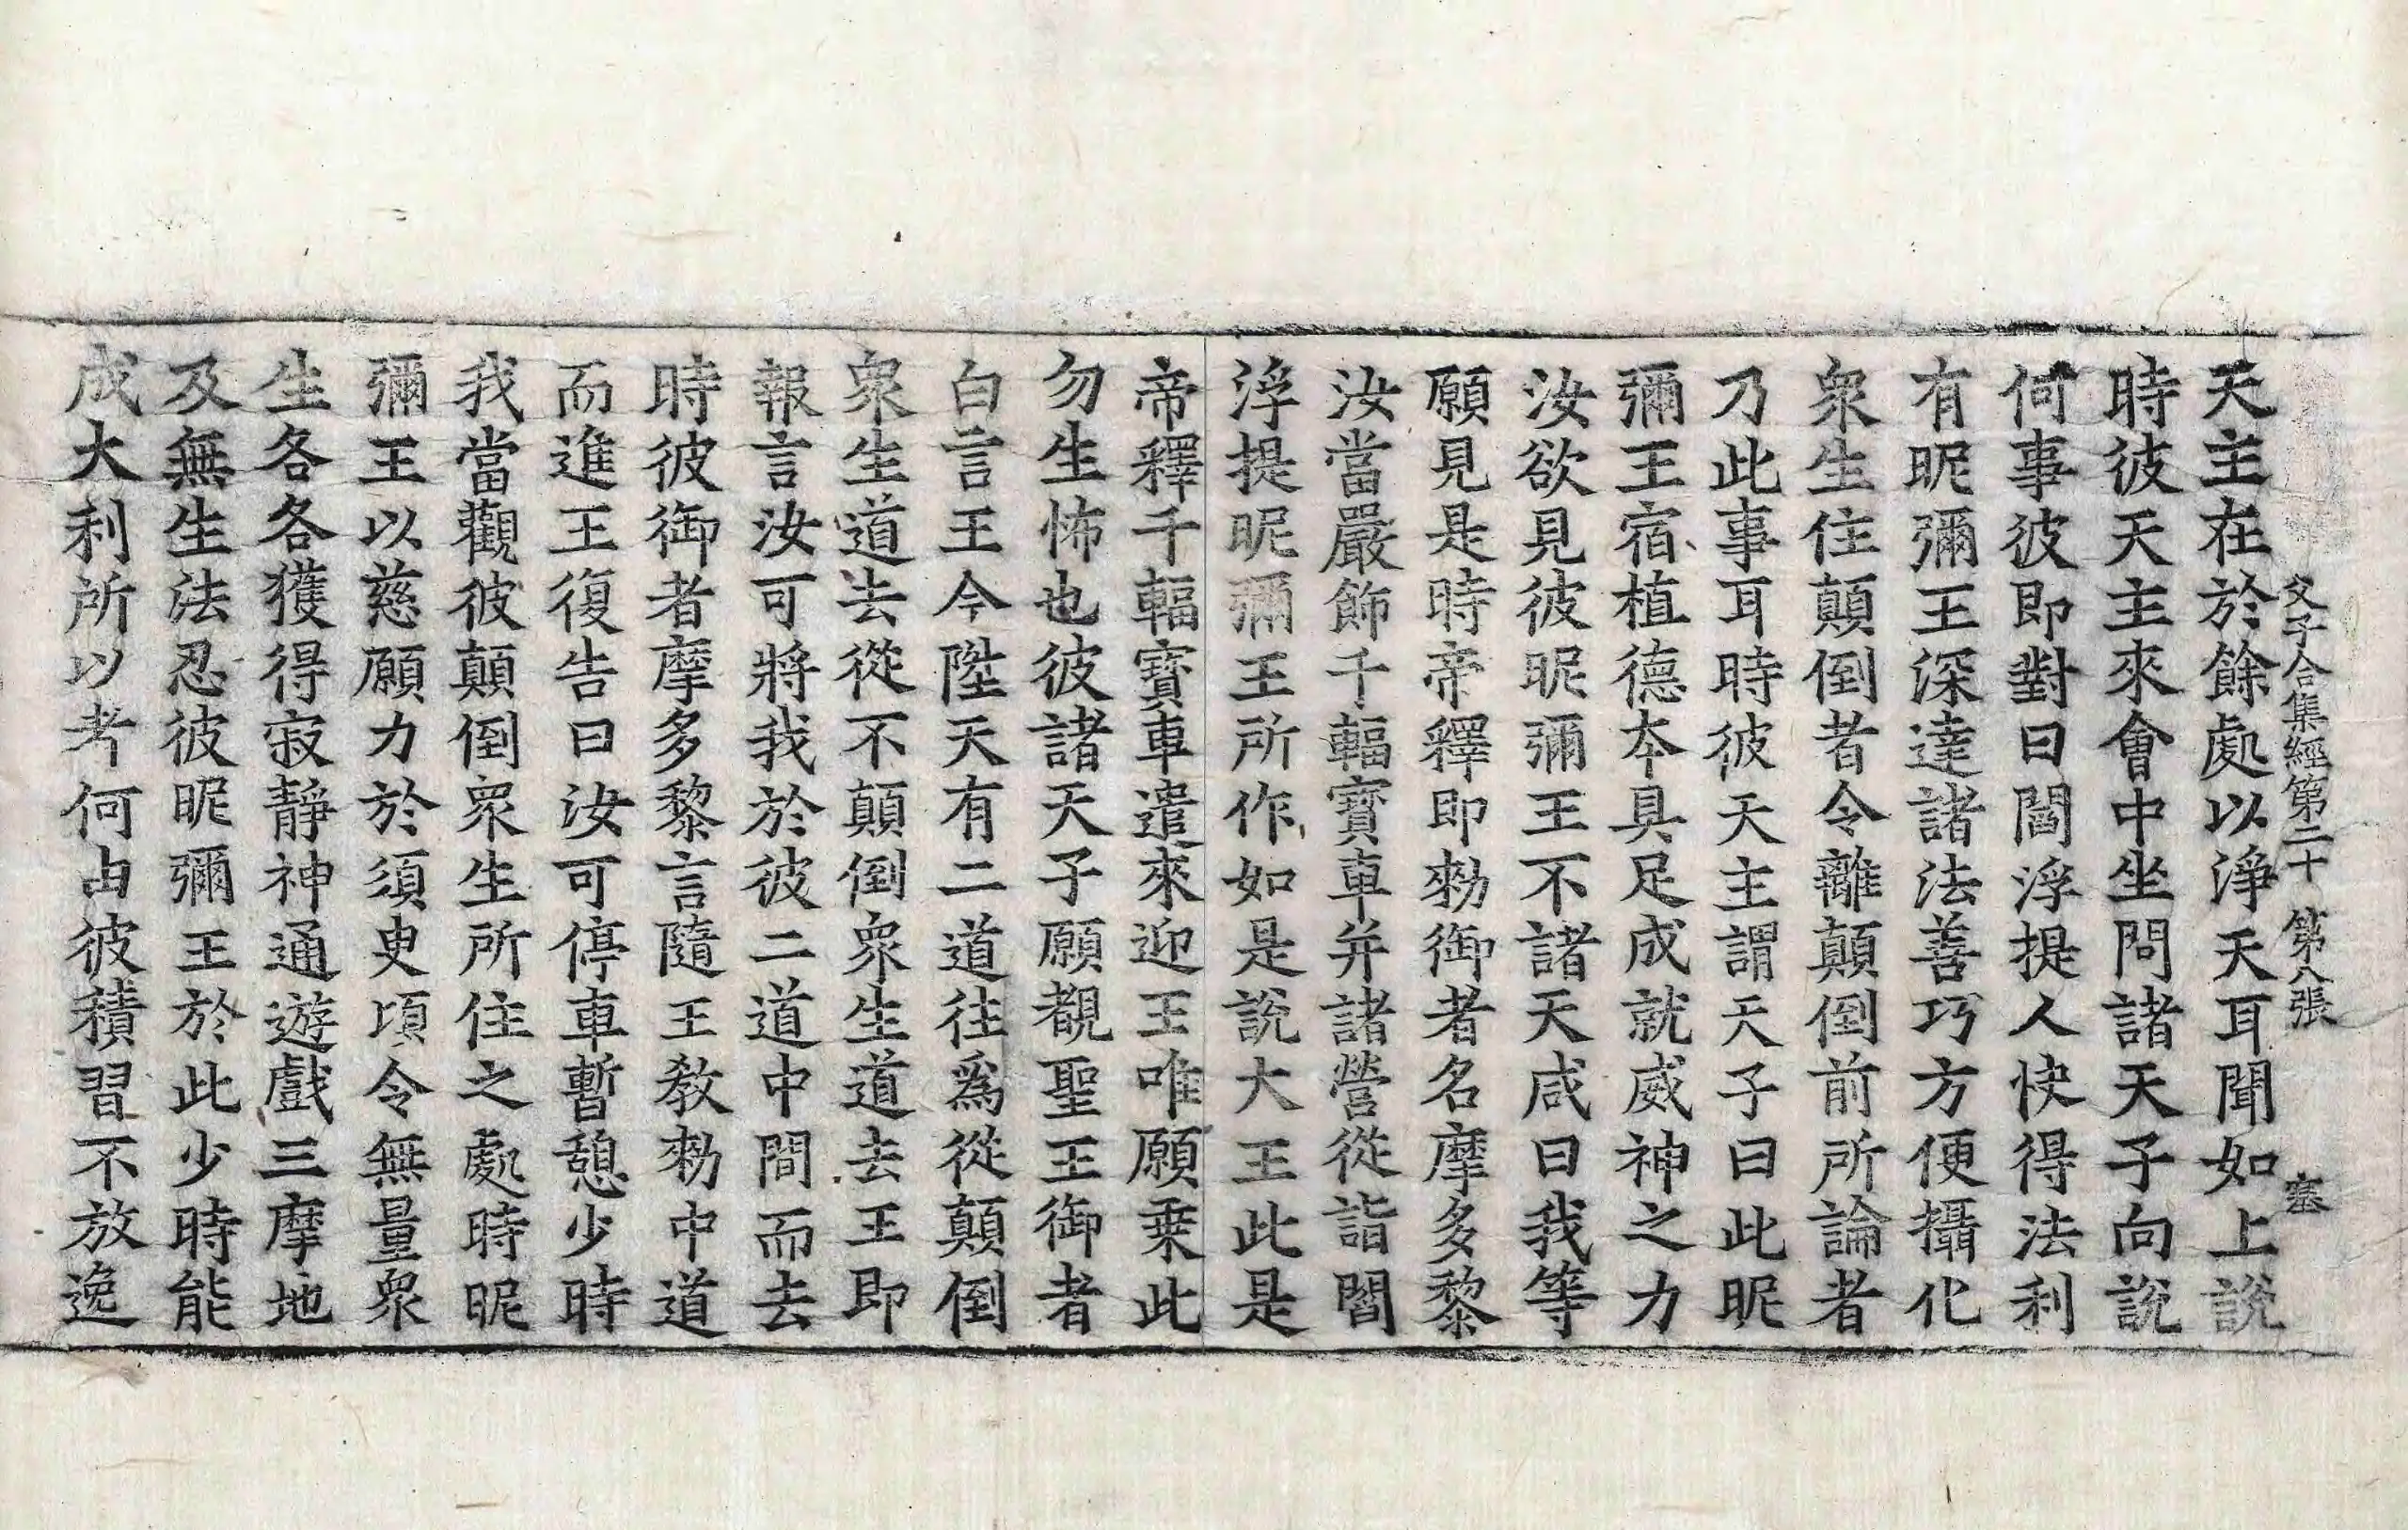 父子合集經第二十　第八張　塞
天主在於餘處以淨天耳聞如上說
時彼天主來會中坐問諸天子向說
何事彼即對曰閻浮提人快得法利
有昵彌王深達諸法善巧方便攝化
衆生住顛倒者令離顛倒前所論者
乃此事耳時彼天主謂天子曰此昵
彌王宿植德本具足成就威神之力
汝欲見彼昵彌王不諸天咸曰我等
願見是時帝釋即勑御者名摩多黎
汝當嚴飾千輻寶車并諸營從詣閻
浮提昵彌王所作如是說大王此是
帝釋千輻寶車遣來迎王唯願乗此
勿生怖也彼諸天子願覩聖王御者
白言王今陞天有二道往爲從顛倒
衆生道去從不顛倒衆生道去王即
報言汝可將我於彼二道中間而去
時彼御者摩多黎言隨王教勑中道
而進王復告曰汝可停車暫憩少時
我當觀彼顛倒衆生所住之處時昵
彌王以慈願力於須臾頃令無量衆
生各各獲得寂靜神通遊戲三摩地
及無生法忍彼昵彌王於此少時能
成大利所以者何由彼積習不放逸